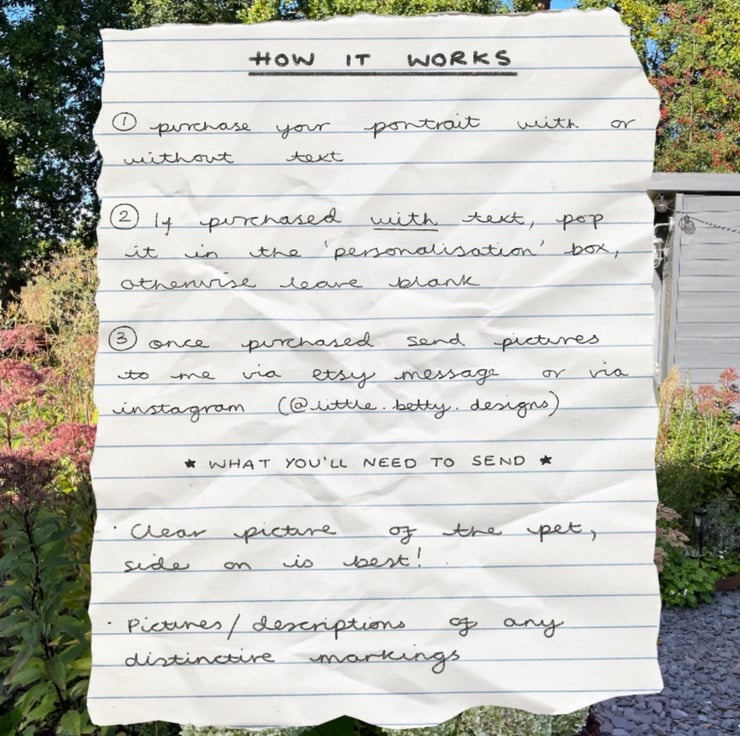 HOW IT WORKS
① purchase your portrait with or
without text
② If purchased with text, pop
it in the 'personalisation' box,
otherwise leave blank
③ once purchased send pictures
to me via etsy message or via
instagram (@little.betty.designs)
* WHAT YOU'LL NEED TO SEND *
· Clear picture of the pet,
side on is best!
· Pictures/descriptions of any
distinctive markings